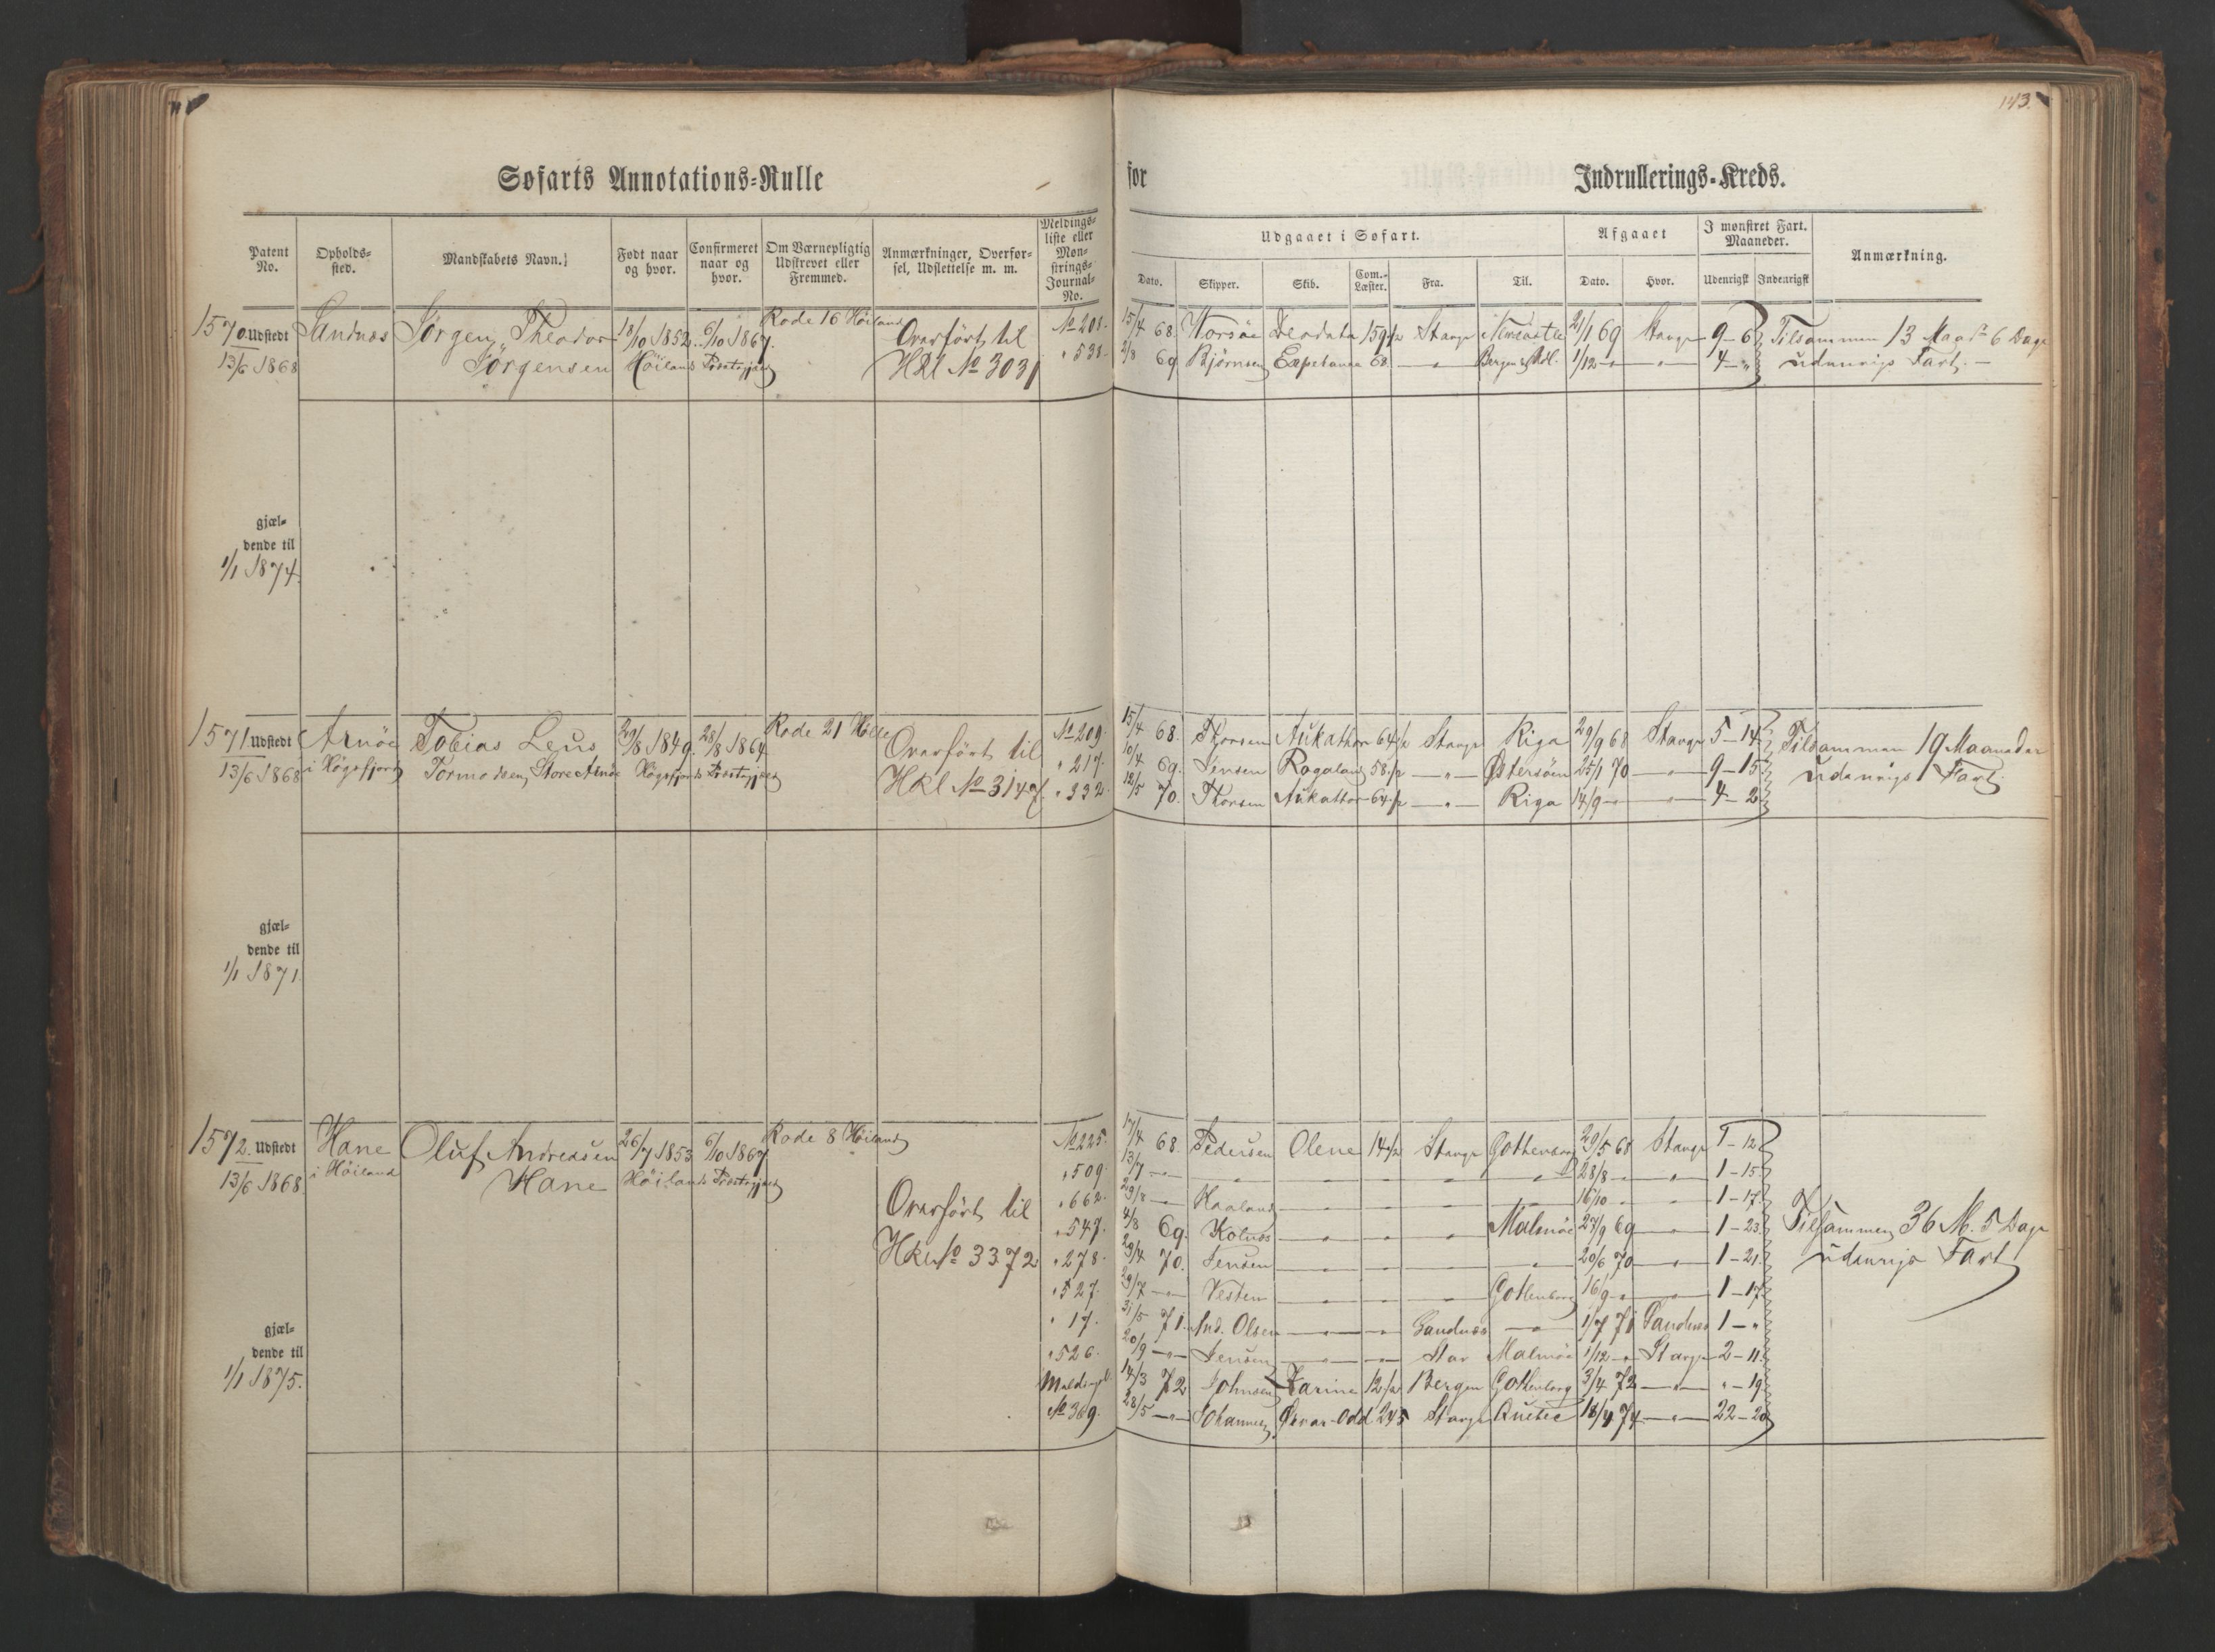 143.
Søfarts Annotations-Rulle
for
Indrullerings-Kreds.
Patent No.
Opholds-sted.
Mandskabets Navn.
Født naar og hvor.
Confirmeret naar og hvor.
Om Værnepligtig Udskrevet eller Fremmed.
Anmærkninger, Overførsel, Udslettelse m. m.
Meldings-liste eller Mønstrings-Journal-No.
Udgaaet i Søfart.
Dato.
Skipper.
Skib.
Com.-Læster.
Fra.
Til.
Afgaaet
Dato.
Hvor.
I mønstret Fart. Maaneder.
Udenrigsk
Indenrigsk
Anmærkning.
1570. Udstedt Sandnæs Jørgen Theodor 18/10 1852 6/10 1867 Rode 16 Höiland Overført til No 208.
13/6 1868 Jørgensen Höilands Præstegjæld HRl No 3031 " 538.
15/4 68. Deodata 159 1/2 Stavgr 21/1 69 Stavgr 9-6 Tilsammen 13 Maad 6 Dage
2/8 69 Bjørnsen Expetance 68 — " — 1/12 — " — " 4-" udenrigs Fart.
gjæl-
dende til
1/1 1874.
1571. Udstedt Arnöe Tobias 29/8 1849. 28/8 1864 Rode 21 Overført til No 209.
13/6 1868 i Høgsfjord Tormodsen, Store Arnöe Høgsfjords Præstegjæld HRl No 3147. " 217.
" 332.
15/4 68. Thorsen Aukathor 64 1/2 Stavgr Riga 29/9 68 Stavgr 5-14 Tilsammen 19 Maaneder
10/4 69. Jensen Rogaland 58 1/2 — " — Østersöen 25/1 70 — " — 9-15 udenrigs Fart.
12/5 70. Thorsen Aukathor 64 1/2 — " — Riga 14/9 — " — " — 4-2
gjæl-
dende til
1/1 1871.
1572. Udstedt Hane Oluf Andreasen 26/7 1853 6/10 1867 Rode 8 Höiland No 225.
13/6 1868 i Höiland Hane Höilands Præstegjæld " 509.
Overført til " 662.
" 547.
HRl No 3372 " 278.
" 527.
" 17.
" 526.
No 369.
17/4 68. Pedersen Olene 14 1/2 Stavgr Gothenborg 29/5 68 Stavgr 1-12
13/7 — " — " " " " " 28/8 — " — " 1-15
29/8 — " — Haaland " " " " 16/10 — " — " 1-17
4/8 69. Kolnæs " " " Malmöe 27/9 69 " 1-23 Tilsammen 36 M. 5 Dage
29/4 70. Jensen " " " " 20/6 70 " 1-21 udenrigs Fart
29/7 — " — Vesten " " " Gothenborg 16/9 — " — " 1-17
31/5 71. And. Olsen " " Sandnæs — " — 1/7 71 Sandnæs 1-"
20/9 — " — Jensen " " Stav Malmöe 1/12 — " Stavgr 2-11
14/3 72 Johnsen Karine 12 1/2 Bergen Gothenborg 3/4 72 — " — "-19
28/5 — " — Johannesen Ørvar-Odd 245 Stavgr Quebec 18/4 74 — " — 22-20
gjæl-
dende til
1/1 1875.